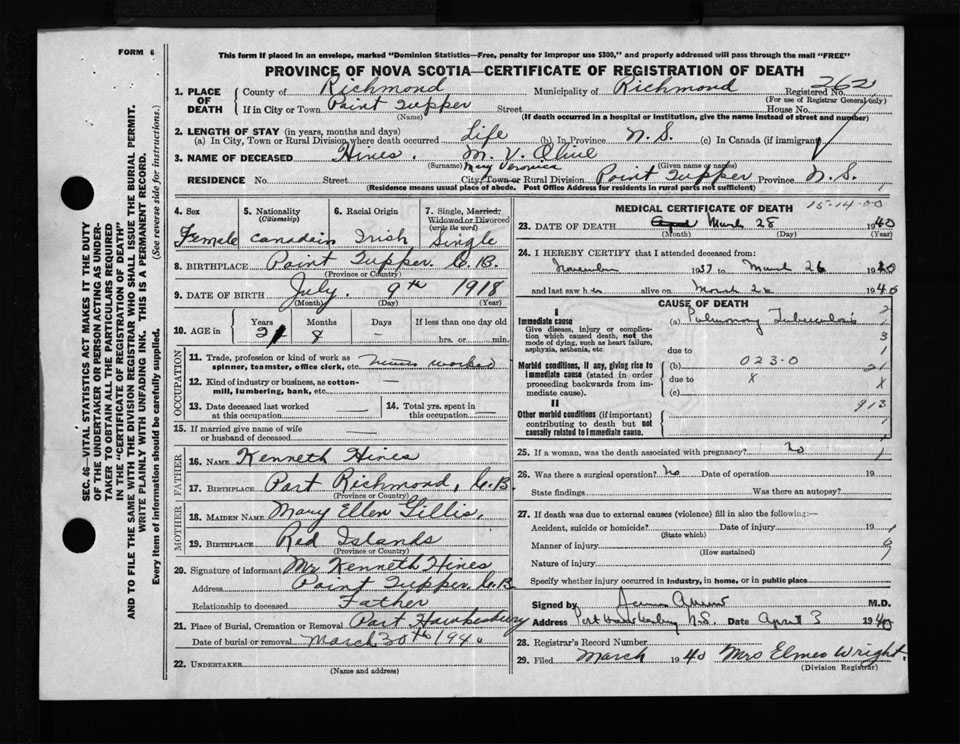 FORM 6
This form if placed in an envelope, marked "Dominion Statistics—Free, penalty for improper use $300," and properly addressed will pass through the mail "FREE"
PROVINCE OF NOVA SCOTIA—CERTIFICATE OF REGISTRATION OF DEATH
SEC. 46—VITAL STATISTICS ACT MAKES IT THE DUTY
OF THE UNDERTAKER OR PERSON ACTING AS UNDER-
TAKER TO OBTAIN ALL THE PARTICULARS REQUIRED
IN THE "CERTIFICATE OF REGISTRATION OF DEATH"
AND TO FILE THE SAME WITH THE DIVISION REGISTRAR WHO SHALL ISSUE THE BURIAL PERMIT.
WRITE PLAINLY WITH UNFADING INK. THIS IS A PERMANENT RECORD.
Every item of information should be carefully supplied. (See reverse side for instructions.)
1. PLACE OF DEATH County of Richmond Municipality of Richmond Registered No. 262
(For use of Registrar General only)
If in City or Town Point Tupper Street House No.
(Name) (If death occurred in a hospital or institution, give the name instead of street and number)
2. LENGTH OF STAY (in years, months and days)
(a) In City, Town or Rural Division where death occurred Life (b) In Province N. S. (c) In Canada (if immigrant)
3. NAME OF DECEASED Hines. M. V. Olive
(Surname) Mary Veronica (Given name or names)
RESIDENCE No. Street City, Town or Rural Division Point Tupper Province N. S.
(Residence means usual place of abode. Post Office Address for residents in rural parts not sufficient)
4. Sex 5. Nationality (Citizenship) 6. Racial Origin 7. Single, Married, Widowed or Divorced (write the word)
Female Canadain Irish Single
8. BIRTHPLACE Point Tupper. C. B.
(Province or Country)
9. DATE OF BIRTH July. 9th 1918
(Month) (Day) (Year)
10. AGE in Years Months Days If less than one day old
21 8 — hrs. or min.
OCCUPATION
11. Trade, profession or kind of work as spinner, teamster, office clerk, etc.
12. Kind of industry or business, as cotton-mill, lumbering, bank, etc. —
13. Date deceased last worked at this occupation — 14. Total yrs. spent in this occupation —
15. If married give name of wife or husband of deceased —
FATHER
16. NAME Kenneth Hines
17. BIRTHPLACE Port Richmond, C. B.
(Province or Country)
MOTHER
18. MAIDEN NAME Mary Ellen Gillis,
19. BIRTHPLACE Red Islands
(Province or Country)
20. Signature of informant Mr Kenneth Hines
Address Point Tupper, C. B.
Relationship to deceased Father
21. Place of Burial, Cremation or Removal Port Hawkesbury
Date of burial or removal March 30th 1940
22. UNDERTAKER
(Name and address)
MEDICAL CERTIFICATE OF DEATH 15-14-00
23. DATE OF DEATH March 28 1940
(Month) (Day) (Year)
24. I HEREBY CERTIFY that I attended deceased from:
November 1937 to March 26 1940
and last saw her alive on March 26 1940
CAUSE OF DEATH
I
Immediate cause (a) Pulmonary Tuberculosis
Give disease, injury or complication which caused death, not the mode of dying, such as heart failure, asphyxia, asthenia, etc.
due to
Morbid conditions, if any, giving rise to immediate cause (stated in order proceeding backwards from immediate cause).
(b) 023.0
due to
(c)
II
Other morbid conditions (if important) contributing to death but not causally related to immediate cause.
913
25. If a woman, was the death associated with pregnancy? No
26. Was there a surgical operation? No Date of operation 19
State findings Was there an autopsy?
27. If death was due to external causes (violence) fill in also the following:—
Accident, suicide or homicide? Date of injury 19
(State which)
Manner of injury
(How sustained)
Nature of injury
Specify whether injury occurred in industry, in home, or in public place
Signed by M.D.
Address Port Hawkesbury N.S. Date April 3 1940
28. Registrar's Record Number
29. Filed March 1940 Mrs Elmer Wright.
(Division Registrar)